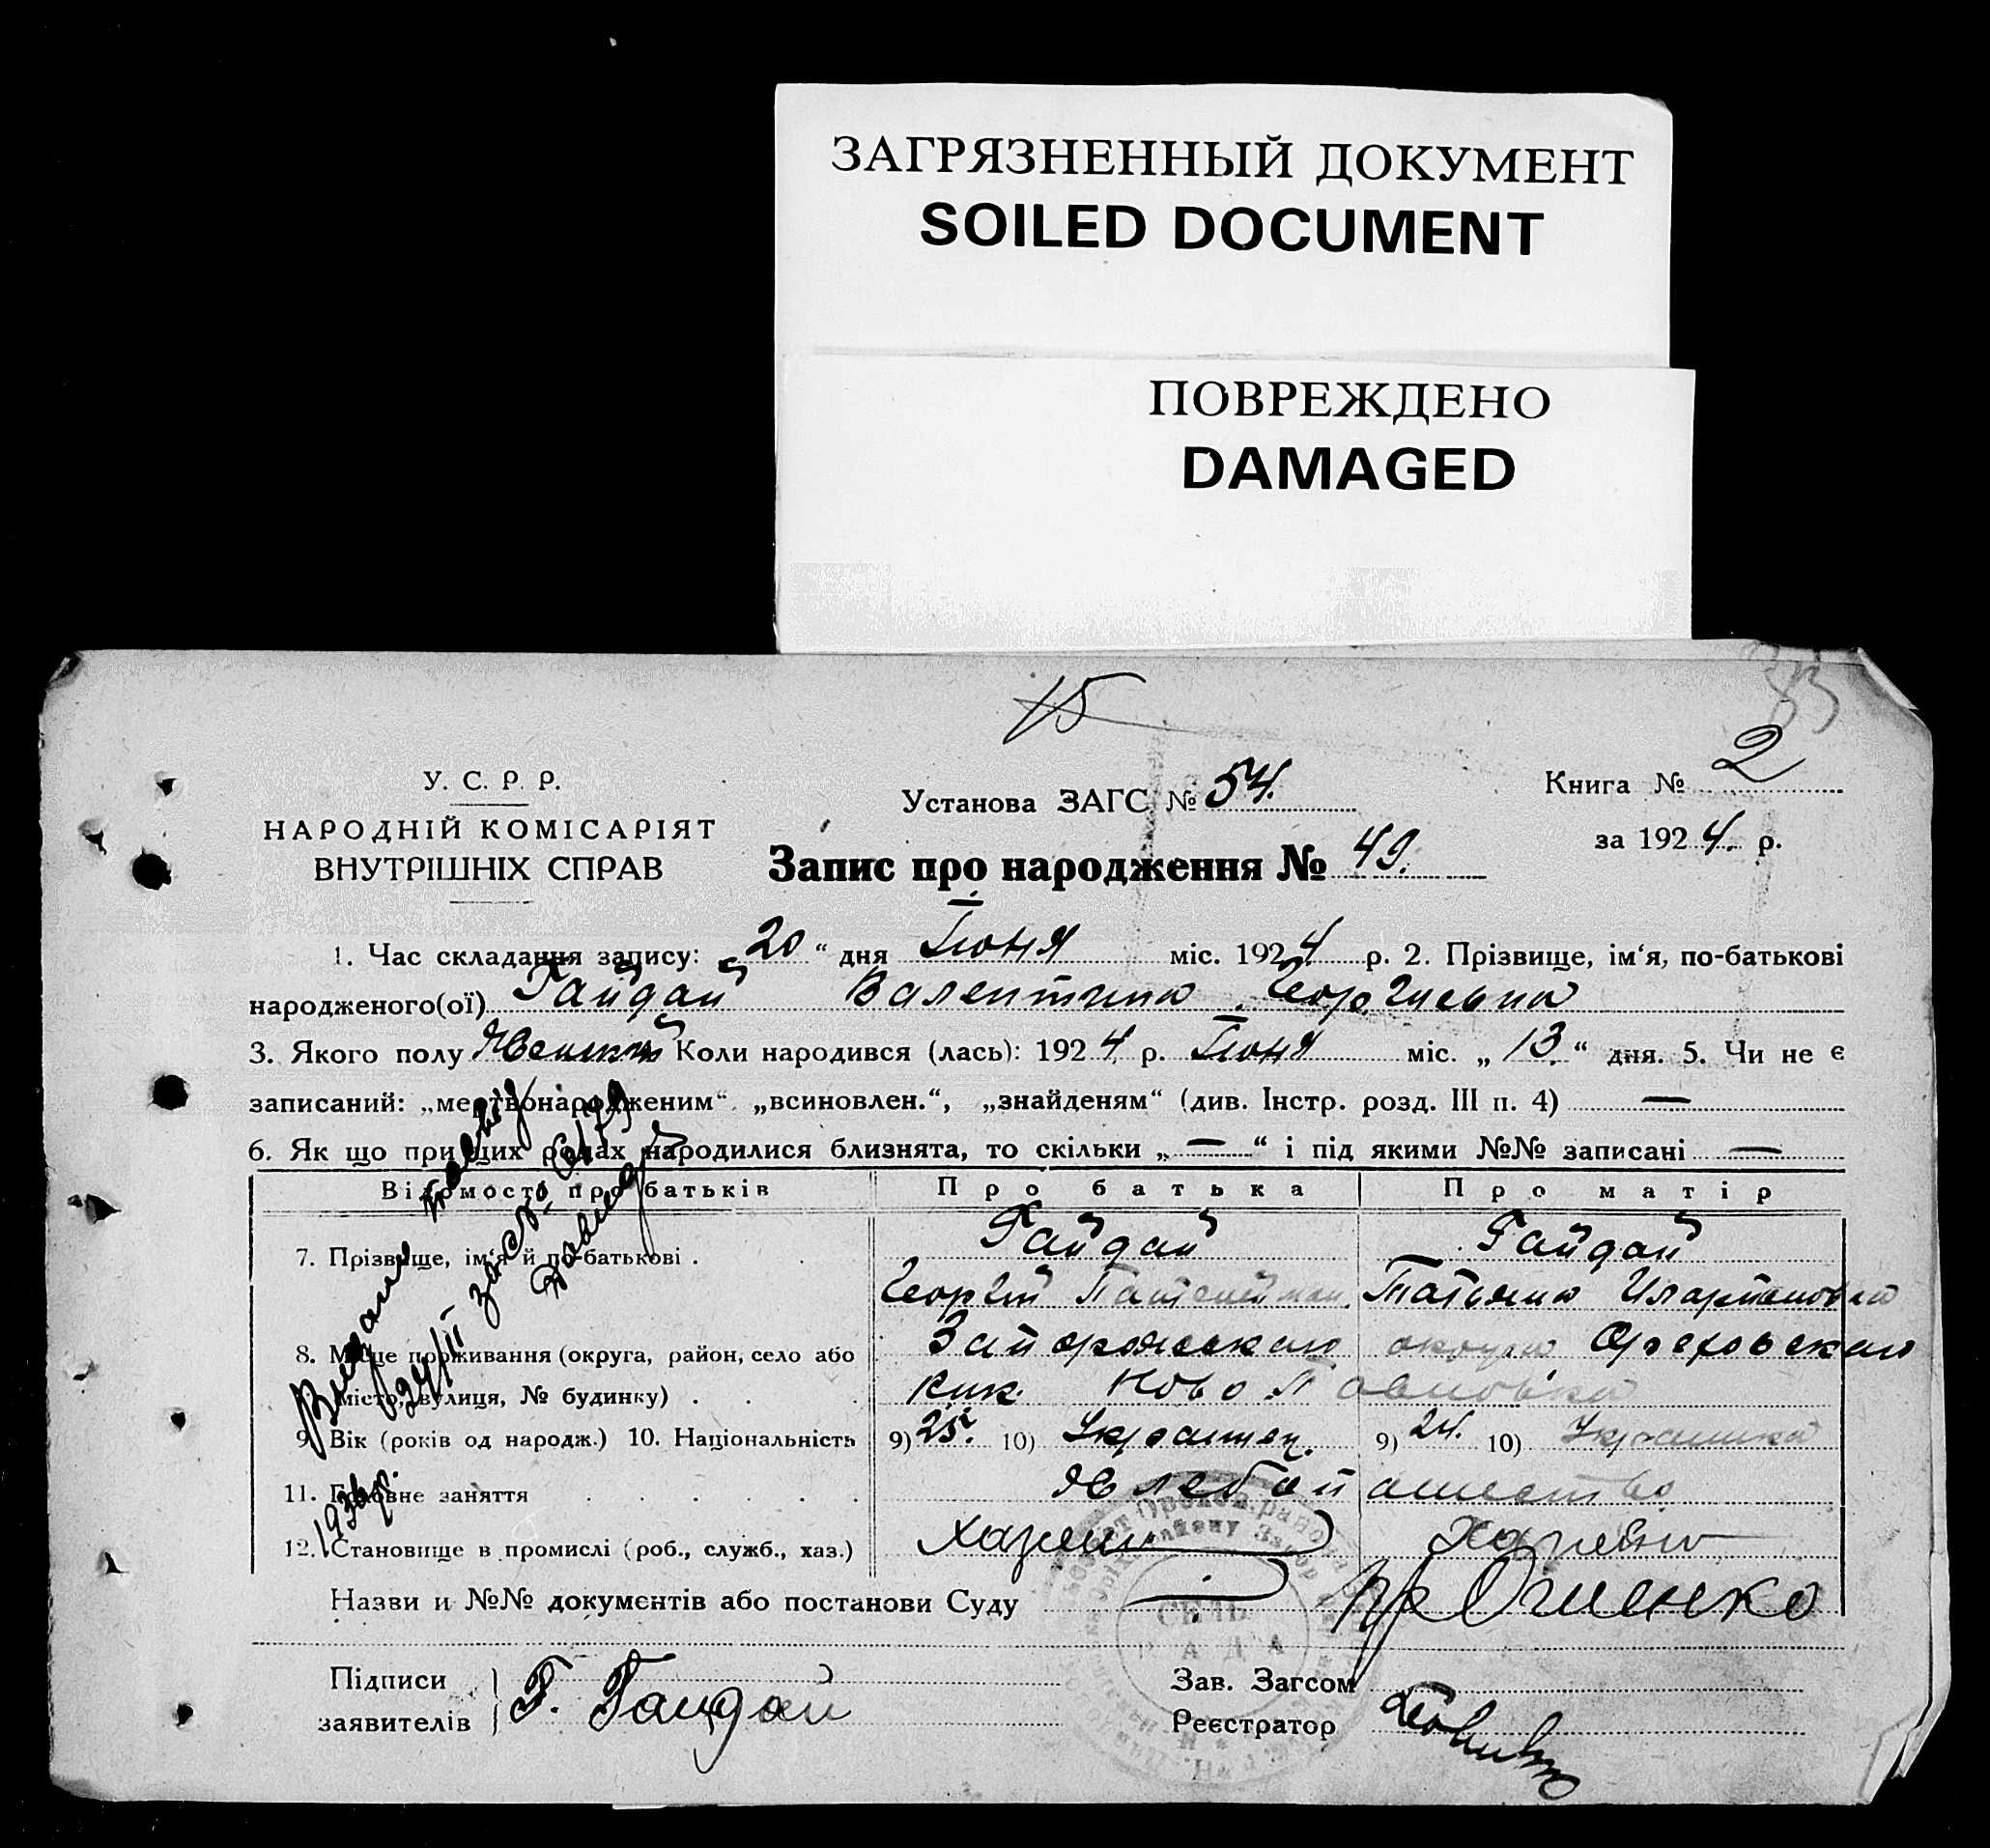 ЗАГРЯЗНЕННЫЙ ДОКУМЕНТ
SOILED DOCUMENT
ПОВРЕЖДЕНО
DAMAGED
15
У. С. Р. Р.
НАРОДНІЙ КОМІСАРІЯТ
ВНУТРІШНІХ СПРАВ
Установа ЗАГС № 54.
Книга № 2
за 1924 р.
Запис про народження № 49.
1. Час складання запису: „20“ дня Іюня міс. 1924 р. 2. Прізвище, ім‘я, по-батькові
народженого(ої) Гайдай Валентина Георгиевна
3. Якого полу Женский Коли народився (лась): 1924 р. Іюня міс. „13.“ дня. 5. Чи не є
записаний: „мертвонародженим“ „всиновлен.“, „знайденям“ (див. Інстр. розд. III п. 4) —
6. Як що при цих родах народилися близнята, то скільки „—“ і під якими №№ записані —
Відомості про батьків Про батька Про матір
7. Прізвище, ім‘я й по-батькові . Гайдай Гайдай
Георгій Татьяна
8. Місце проживання (округа, район, село або Запорожскаго округа Ореховскаго
місто, вулиця, № будинку) . Ново Павловка
9. Вік (років од народж.) 10. Національність 9) 25. 10) Украинец. 9) 24. 10) Украинка
11. Головне заняття Хлебопашество
12. Становище в промислі (роб., служб., хаз.) Хазяин Хазяйка
Назви и №№ документів або постанови Суду
СЕЛЬ
РАДА
Підписи
заявителів Г. Гайдай
Зав. Загсом
Реєстратор
1936 р.